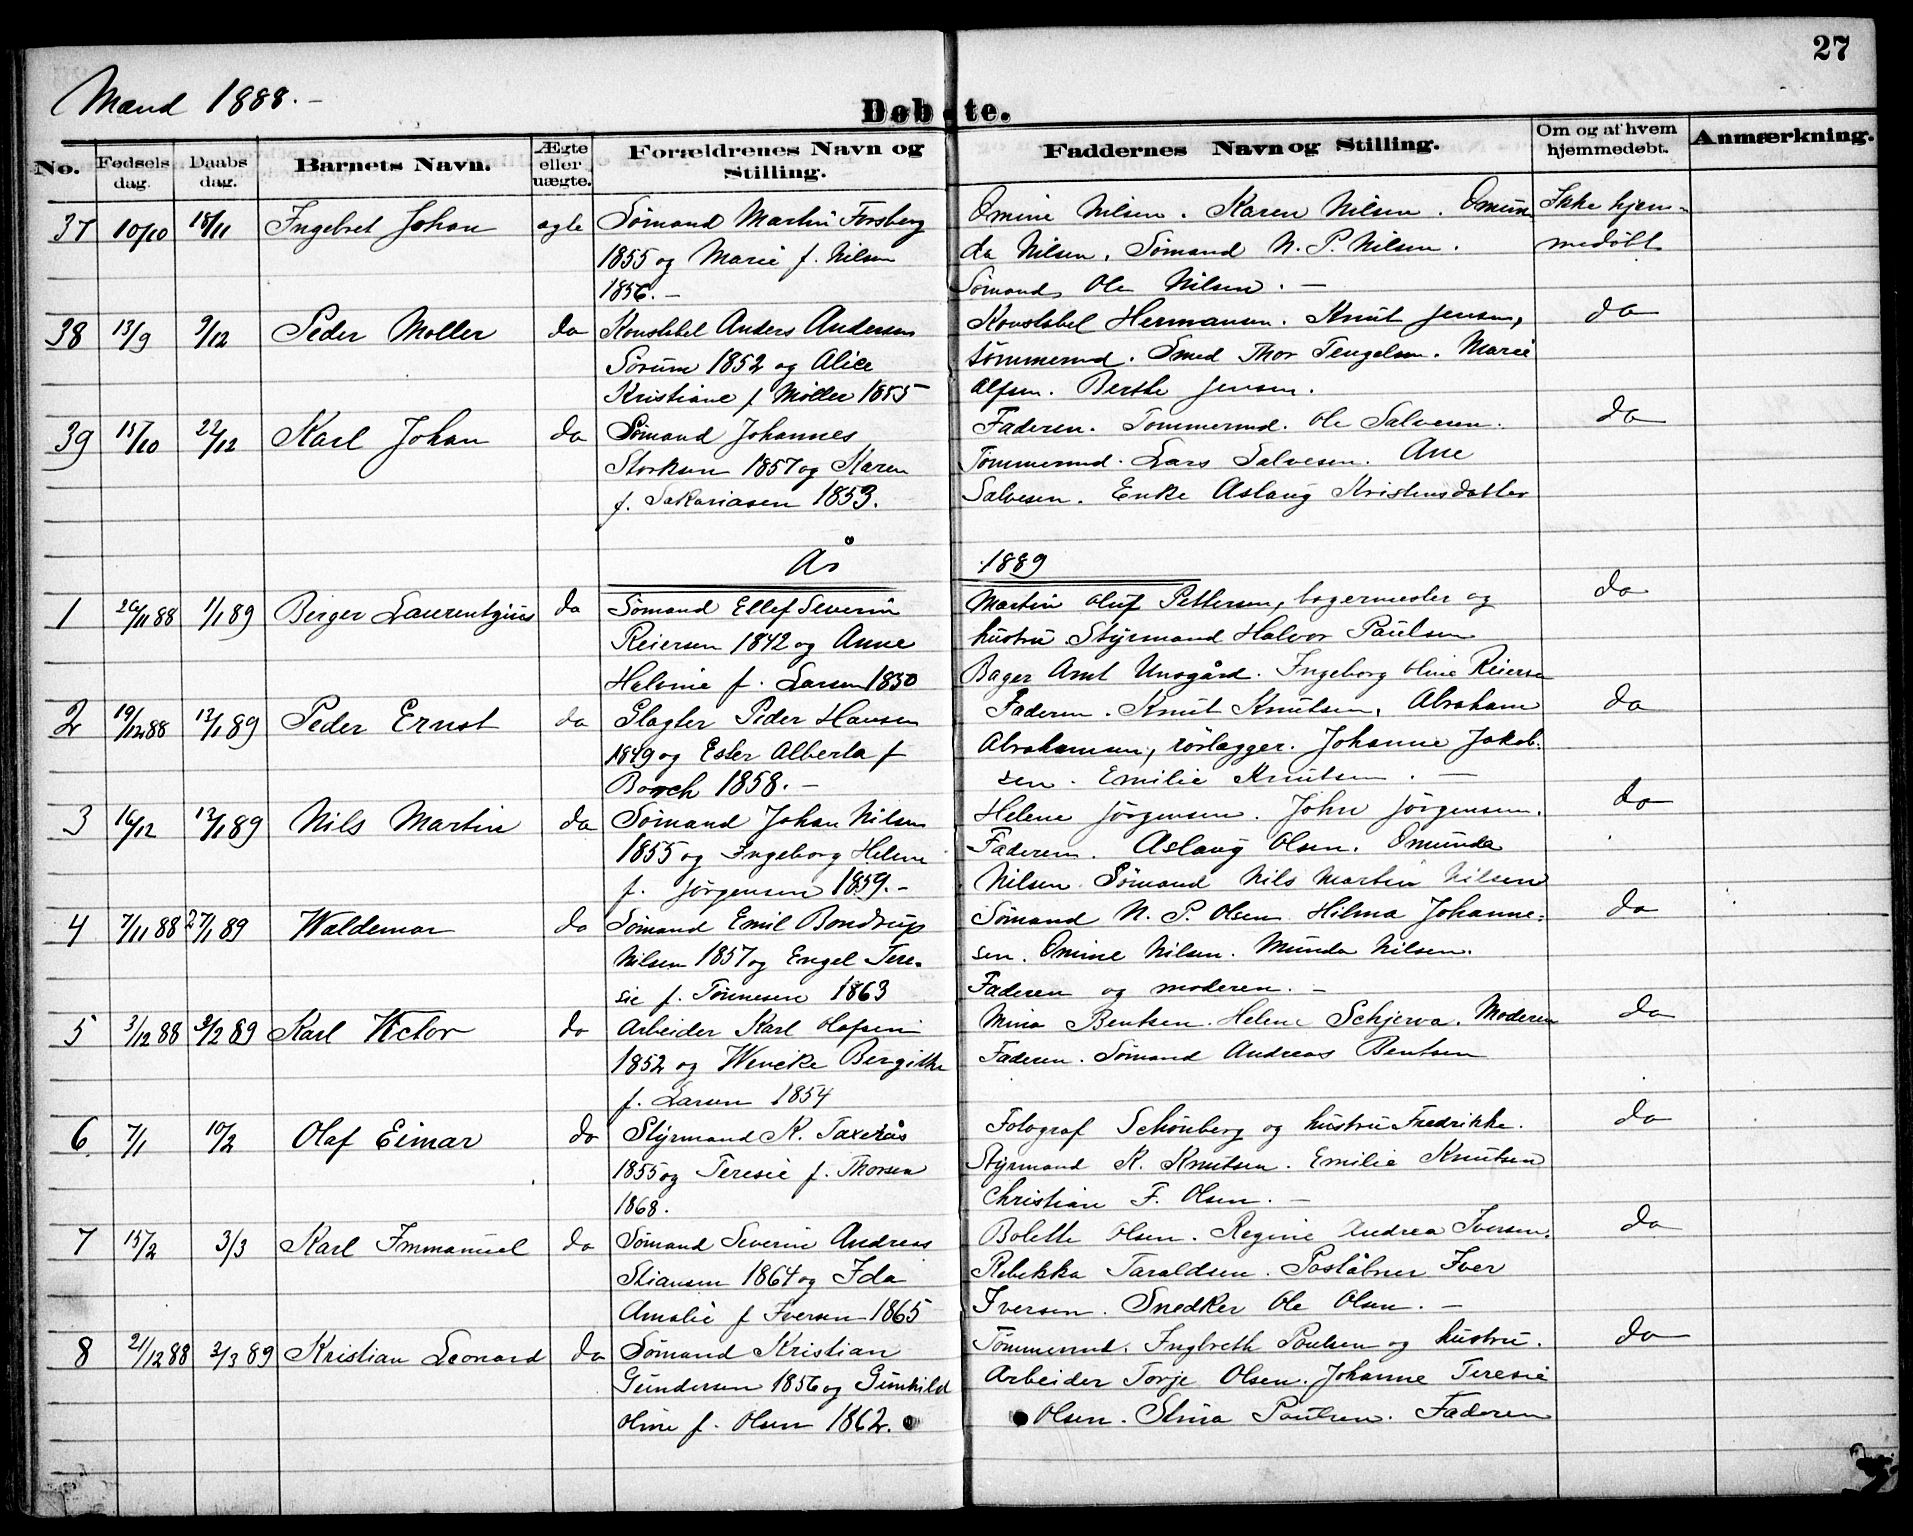 27
Mænd 1888.-
Døbte.
No. Fødsels dag. Daabs dag. Barnets Navn. Ægte eller uægte. Forældrenes Navn og Stilling. Faddernes Navn og Stilling. Om og af hvem hjemmedøbt. Anmærkning.
37 10/10 18/11 Ingebret Johan ægte Sømand Martin Forsberg Omine Nilsen. Karen Nilsen. Omun Ikke hjem-
1855 og Marie f. Nilsen da Nilsen. Sømand N. P. Nilsen. medøbt
1856.- Sømand Ole Nilsen.-
38 13/9 9/12 Peder Møller do Konstabel Anders Andersen Konstabel Hermansen. Knut Jensen, do
Sørum 1852 og Alice tømmermd. Smed Thor Tengelsen. Marie
Kristiane f Møller 1855 Alfsen. Berthe Jensen.
39 15/10 22/12 Karl Johan do Sømand Johannes Faderen. Tømmermd. Ole Salvesen. do
Storksen 1857 og Karen Tømmermd. Lars Salvesen. Ane
f. Sakariasen 1853. Salvesen. Enke Aslaug Kristensdatter
År 1889
1 26/11 88 1/1 89 Berger Laurentzius do Sømand Ellef Severin Martin Oluf Pettersen, bagermester og do
Reiersen 1842 og Anne hustru Styrmand Halvor Paulsen
Helmine f. Larsen 1850 Bager Amt Unsgård. Ingeborg Oline Reierse
2 19/12 88 13/1 89 Peder Ernst do Slagter Peder Hansen Faderen. Knut Knutsen. Abraham do
1849 og Ester Alberta f Abrahamsen, rørlægger. Johanne Jakob-
Borch 1858.- sen. Emilie Knutsen.-
3 16/12 13/1 89 Nils Martin do Sømand Johan Nilsen Helene Jørgensen. John Jørgensen. do
1855 og Ingeborg Helene Faderen. Aslaug Olsen. Omunda
f. Jørgensen 1859.- Nilsen. Sømand Nils Martin Nilsen
4 7/11 88 27/1 89 Waldemar do Sømand Emil Bondrup Sømand N. P. Olsen. Hilma Johanne- do
Nilsen 1857 og Engel Tere- sen. Omine Nilsen. Munda Nilsen.
sie f. Tønnesen 1863 Faderen og moderen.-
5 3/12 88 3/2 89 Karl Victor do Arbeider Karl Olafsen Mina Bentsen. Helene Schjerva. Moderen do
1852 og Wencke Bergitte Faderen. Sømand Andreas Bentsen
f. Larsen 1854
6. 7/1 10/2 Olaf Eimar do Styrmand K. Taxerås Fotograf Schønberg og hustru Fredrikke. do
1855 og Teresie f. Thorsen Styrmand K. Knutsen. Emilie Knutsen
1868. Christian F. Olsen.-
7 15/2 3/3 Karl Immanuel do Sømand Severin Andreas Bolette Olsen. Regine Andrea Iversen. do
Stiansen 1864 og Ida Rebekka Taraldsen. Poståbner Iver
Amalie f Iversen 1865 Iversen. Snedker Ole Olsen.-
8 21/12 88 3/3 89 Kristian Leonard do Sømand Kristian Tømmermd. Ingbreth Poulsen og hustru. do
Gundersen 1856 og Gunhild Arbeider Torje Olsen. Johanne Teresie
Oline f. Olsen 1862. Olsen. Stina Poulsen. Faderen